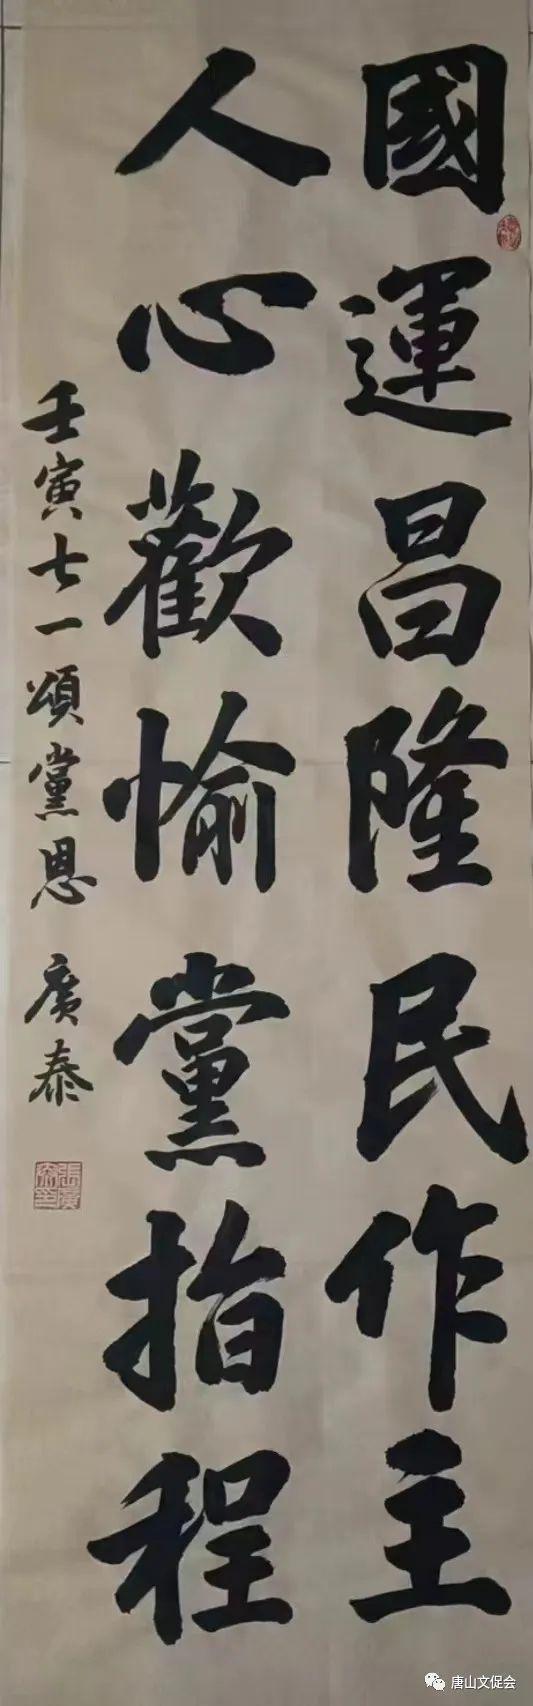 國運昌隆民作主
人心歡愉黨指程
壬寅七一頌黨恩 廣泰
唐山文促会